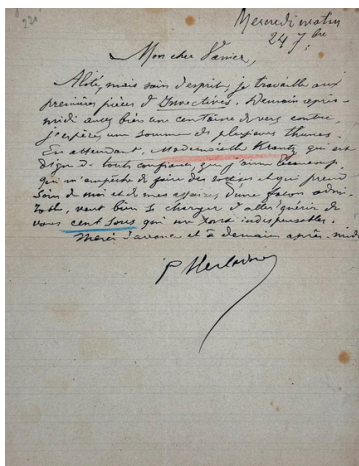 220
Mercredi matin
24 7bre
Mon cher Vanier,
Alité, mais sain d'esprit, je travaille aux
premières pièces d'Invectives. Demain après-
midi aurez bien une centaine de vers contre,
j'espère, une somme de plusieurs thunes.
En attendant, Mademoiselle Krantz qui est
digne de toute confiance, que j'aime beaucoup,
qui m'empêche de faire des sottises et qui prend
soin de moi et de mes affaires d'une façon admi
rable, veut bien se charger d'aller quérir de
vous cent sous qui me sont indispensables.
Merci d'avance et à demain après-midi
P Verlaine